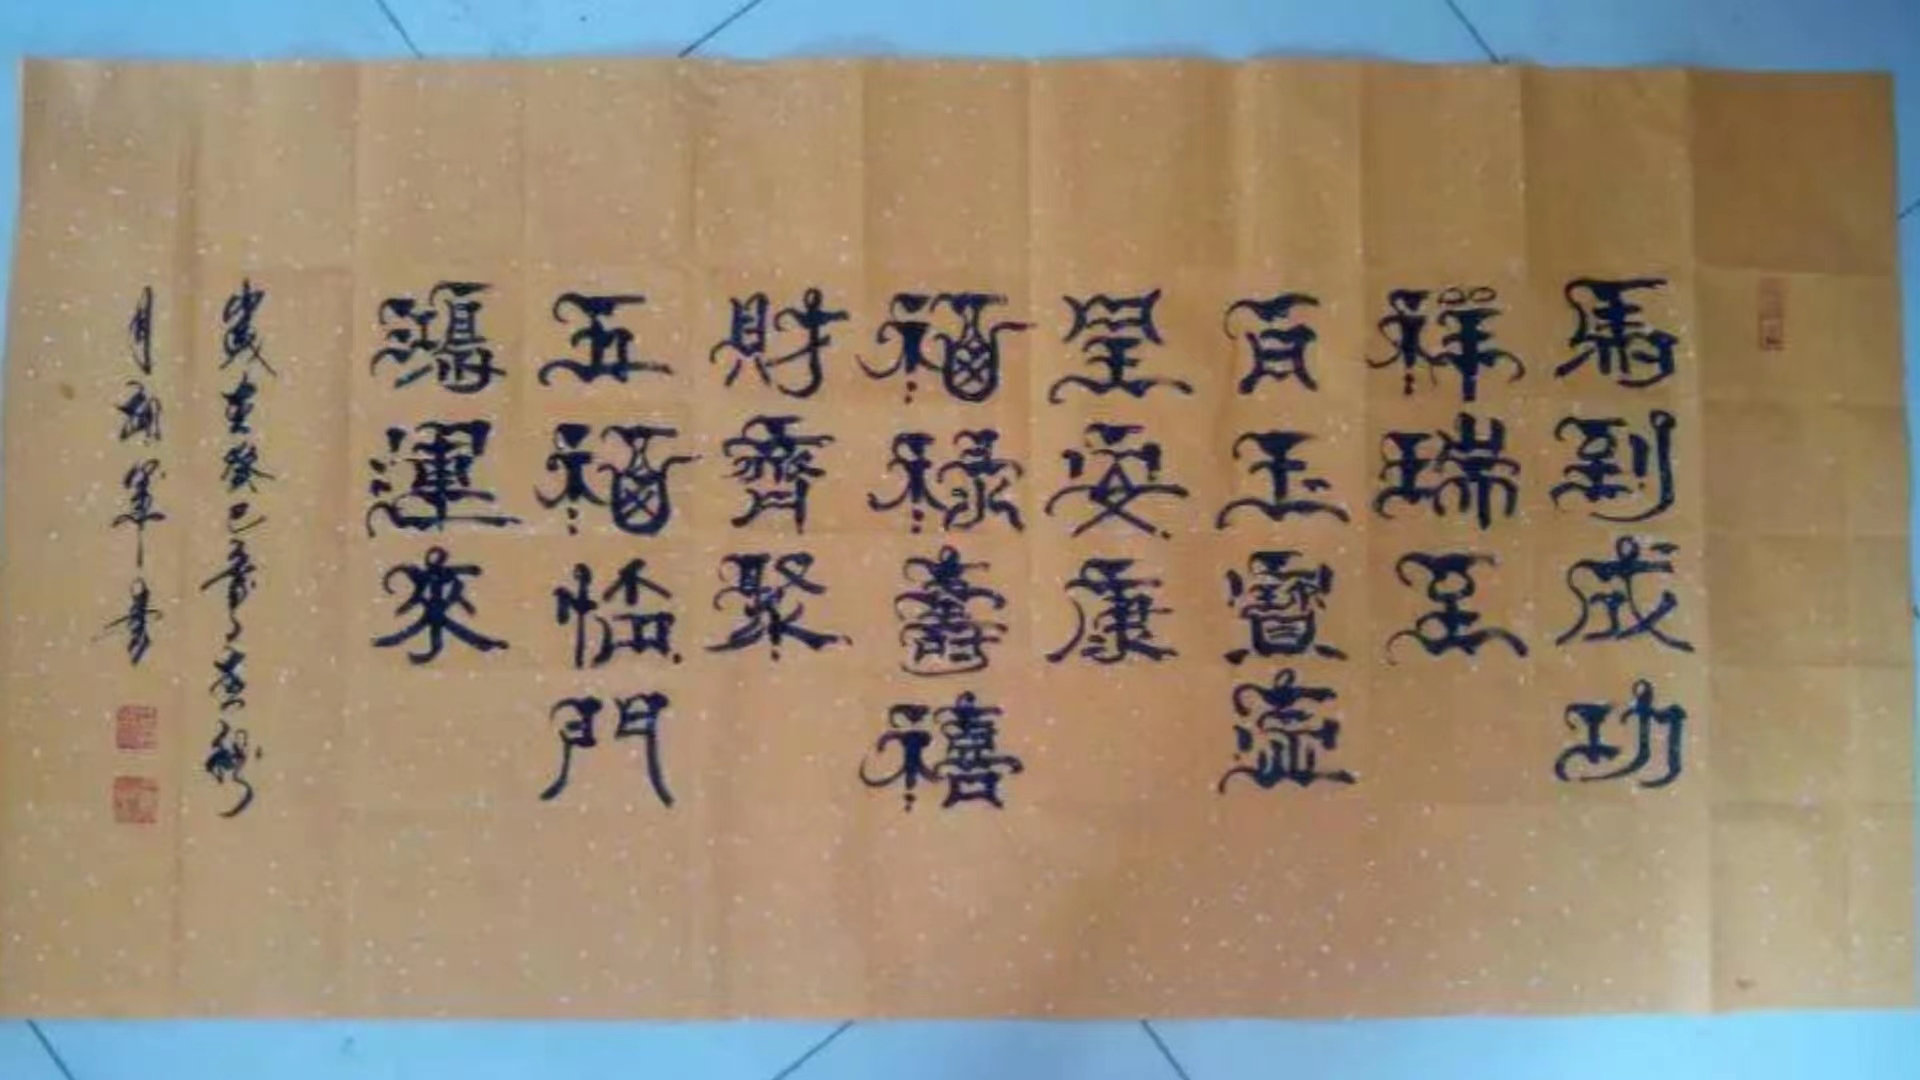 馬到成功
祥瑞至
百玉寶盃
呈安康
福祿壽禧
財齊聚
五福臨門
鴻運來
歲在癸巳
月 軍書